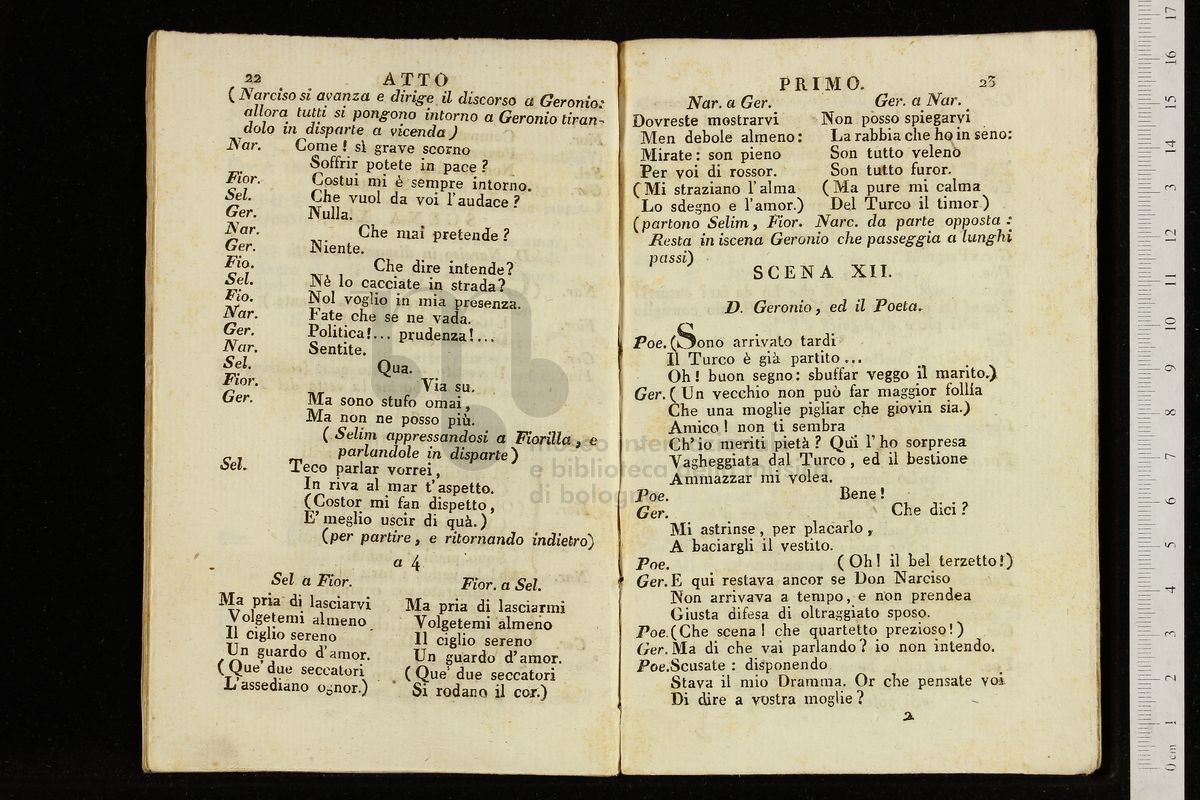 22 ATTO
( Narciso si avanza e dirige il discorso a Geronio:
allora tutti si pongono intorno a Geronio tiran-
dolo in disparte a vicenda )
Nar. Come ! sì grave scorno
Soffrir potete in pace ?
Fior. Costui mi è sempre intorno.
Sel. Che vuol da voi l'audace ?
Ger. Nulla.
Nar. Che mai pretende ?
Ger. Niente.
Fio. Che dire intende?
Sel. Nè lo cacciate in strada?
Fio. Nol voglio in mia presenza.
Nar. Fate che se ne vada.
Ger. Politica!... prudenza!...
Nar. Sentite.
Sel. Qua.
Fior. Via su.
Ger. Ma sono stufo omai,
Ma non ne posso più.
( Selim appressandosi a Fiorilla, e
parlandole in disparte )
Sel. Teco parlar vorrei,
In riva al mar t'aspetto.
(Costor mi fan dispetto,
E' meglio uscir di quà.)
(per partire, e ritornando indietro)
a 4
Sel a Fior.
Ma pria di lasciarvi
Volgetemi almeno
Il ciglio sereno
Un guardo d'amor.
( Que' due seccatori
L'assediano ognor.)
Fior. a Sel.
Ma pria di lasciarmi
Volgetemi almeno
Il ciglio sereno
Un guardo d'amor.
( Que' due seccatori
Si rodano il cor.)
PRIMO. 23
Nar. a Ger.
Dovreste mostrarvi
Men debole almeno:
Mirate: son pieno
Per voi di rossor.
( Mi straziano l'alma
Lo sdegno e l'amor.)
Ger. a Nar.
Non posso spiegarvi
La rabbia che ho in seno:
Son tutto veleno
Son tutto furor.
( Ma pure mi calma
Del Turco il timor.)
(partono Selim, Fior. Narc. da parte opposta :
Resta in iscena Geronio che passeggia a lunghi
passi)
SCENA XII.
D. Geronio, ed il Poeta.
Poe. (Sono arrivato tardi
Il Turco è già partito ...
Oh! buon segno: sbuffar veggo il marito.)
Ger. ( Un vecchio non può far maggior follía
Che una moglie pigliar che giovin sia.)
Amico! non ti sembra
Ch'io meriti pietà ? Quì l'ho sorpresa
Vagheggiata dal Turco, ed il bestione
Ammazzar mi volea.
Poe. Bene!
Ger. Che dici ?
Mi astrinse, per placarlo,
A baciargli il vestito.
Poe. ( Oh! il bel terzetto!)
Ger. E qui restava ancor se Don Narciso
Non arrivava a tempo, e non prendea
Giusta difesa di oltraggiato sposo.
Poe. (Che scena! che quartetto prezioso!)
Ger. Ma di che vai parlando? io non intendo.
Poe. Scusate : disponendo
Stava il mio Dramma. Or che pensate voi
Di dire a vostra moglie ?
2
museo internazionale
e biblioteca della musica
di bologna
0 cm 1 2 3 4 5 6 7 8 9 10 11 12 13 14 15 16 17